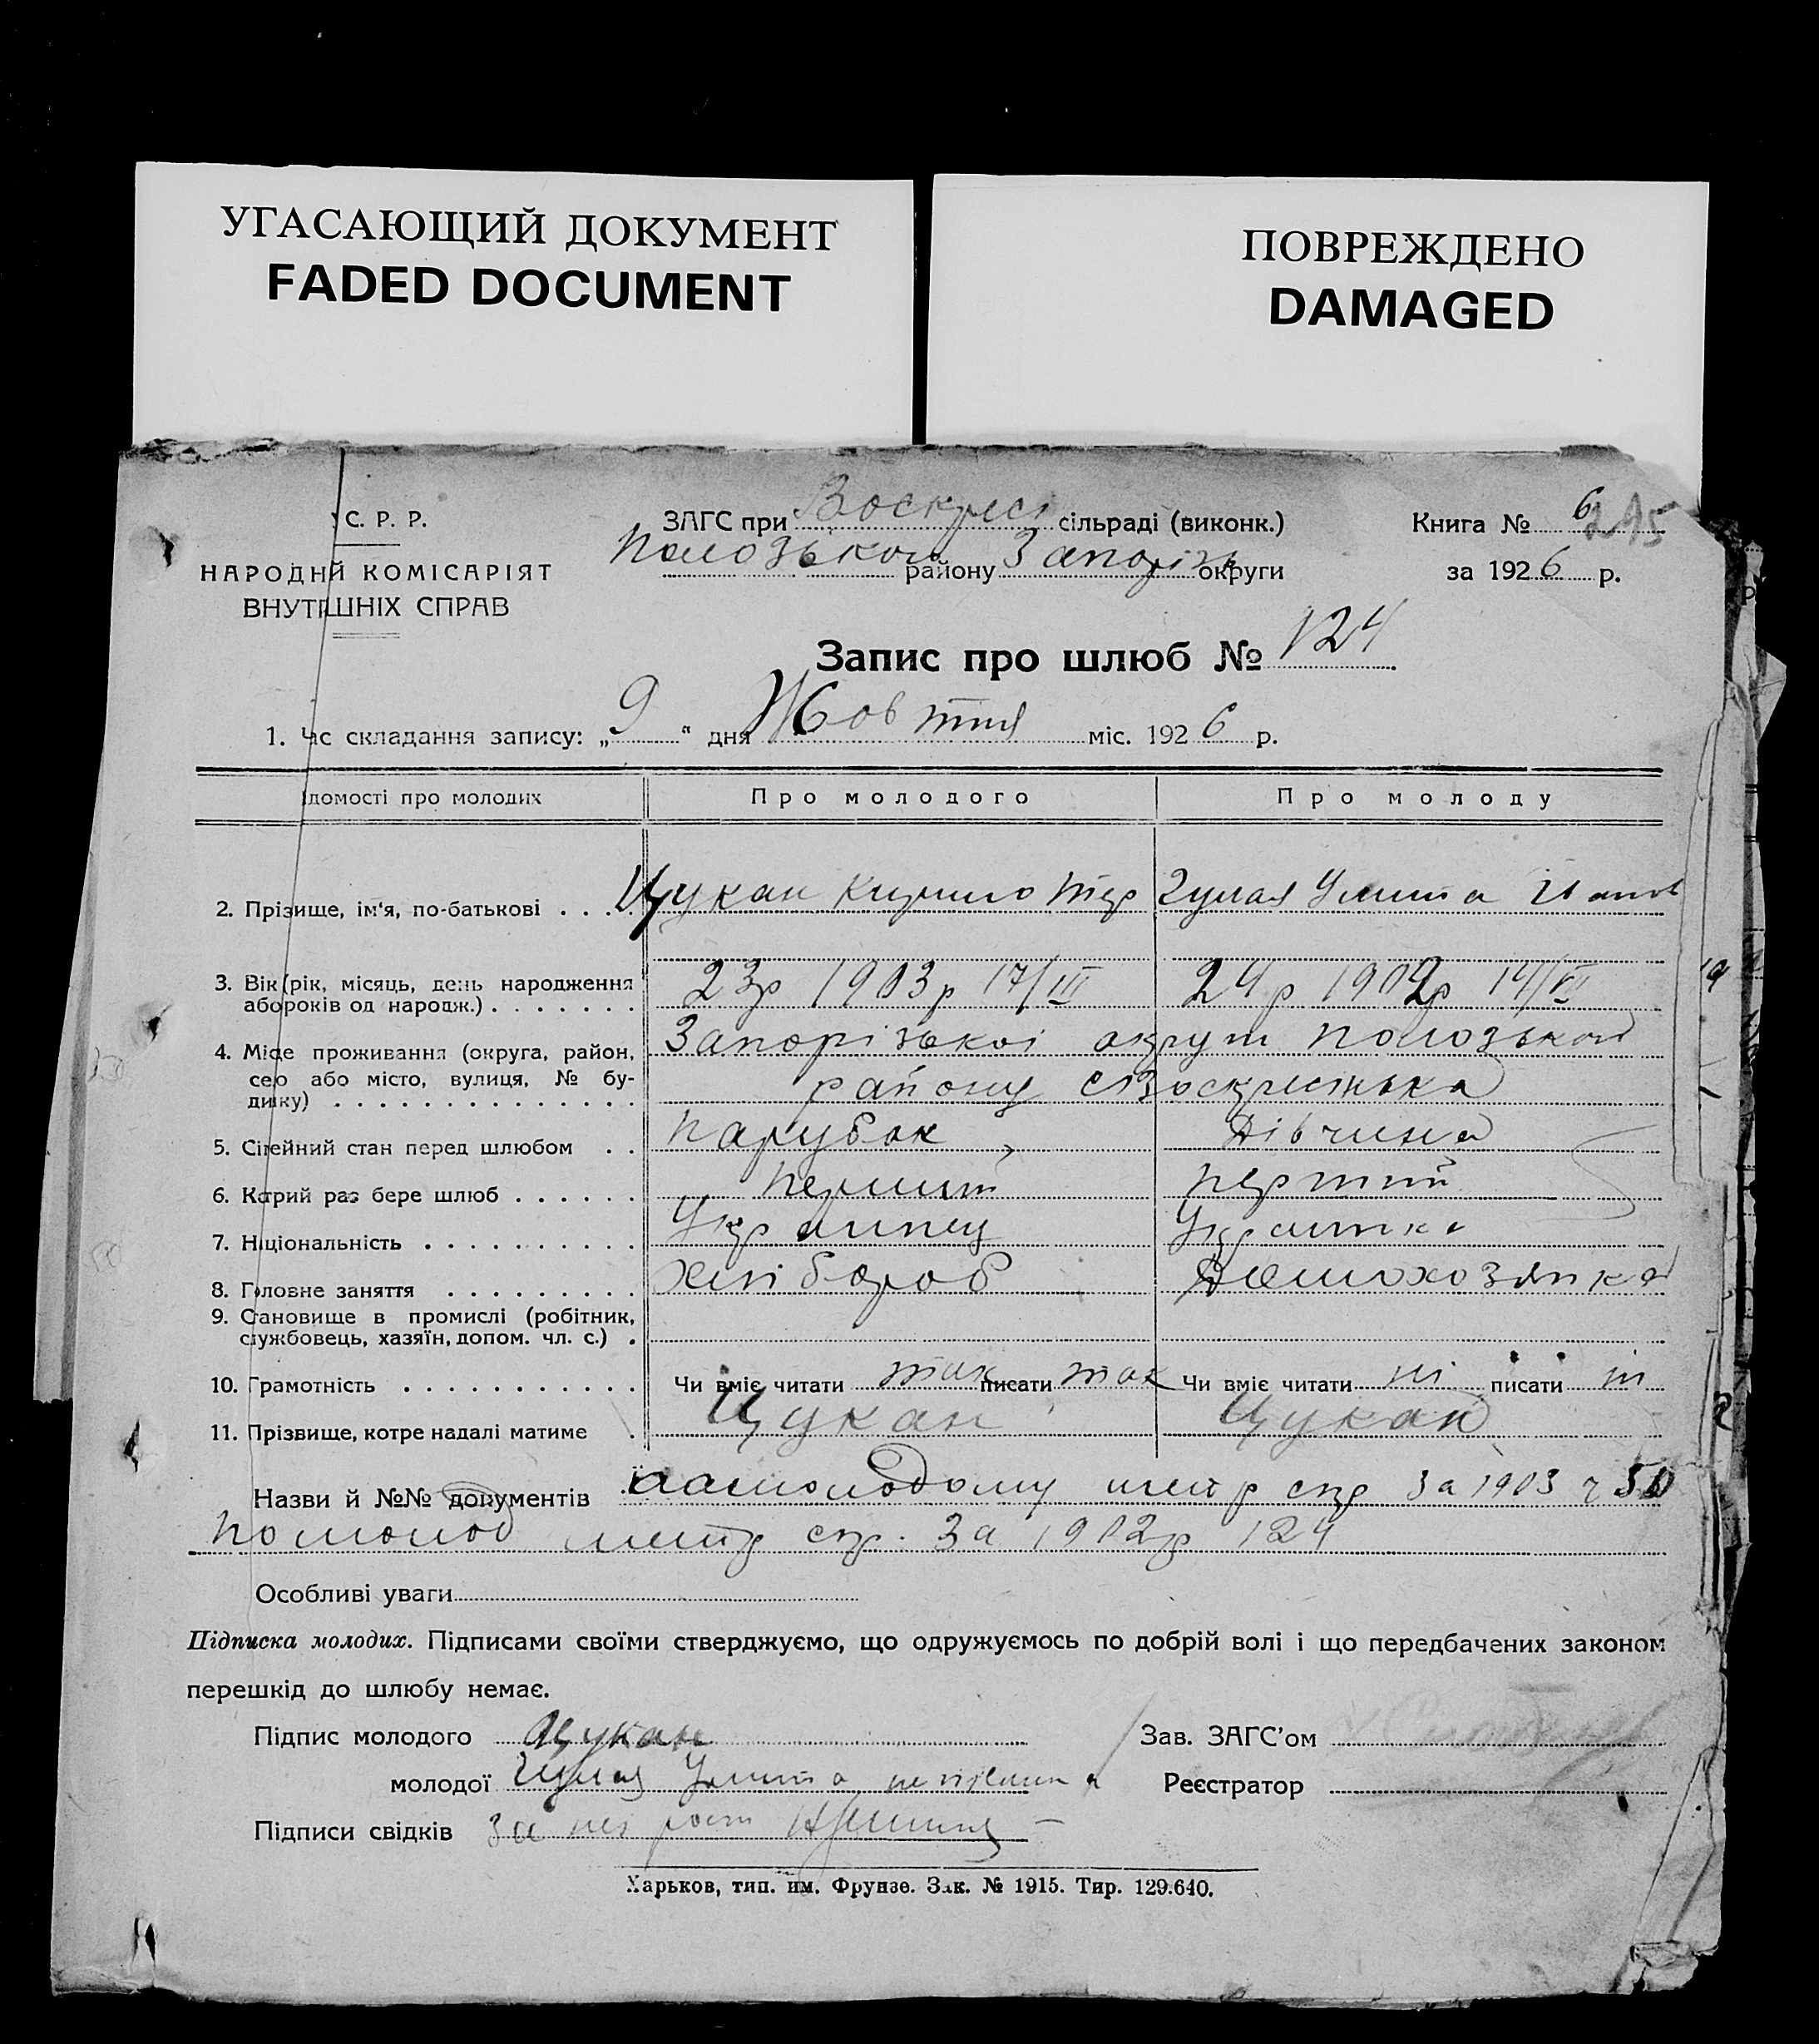 УГАСАЮЩИЙ ДОКУМЕНТ
FADED DOCUMENT
ПОВРЕЖДЕНО
DAMAGED
С. Р. Р.
НАРОДНІЙ КОМІСАРІЯТ
ВНУТРІШНІХ СПРАВ
ЗАГС при Воскресі сільраді (виконк.)
Полозького району Запорізь округи
Книга № 6
215
за 1926 р.
Запис про шлюб № 124
1. Час складання запису: „9" дня Жовтня міс. 1926 р.
ідомості про молодих Про молодого Про молоду
2. Прізвище, ім'я, по-батькові . . . . Цукан Кирило Гулая Улита Иванов
3. Вік (рік, місяць, день народження
або років од народж.) . . . . . . . 23р 1903р 17/III 24р 1902р 14/VI
4. Місце проживання (округа, район,
село або місто, вулиця, № бу-
динку) . . . . . . . . . . . . . . Запорізької округи Полозької
району с Воскресінька
5. Сімейний стан перед шлюбом . . Парубок Дівчина
6. Котрий раз бере шлюб . . . . . . Перший перший
7. Національність . . . . . . . . . . Українець Українка
8. Головне заняття . . . . . . . . . Хлібороб Домохозяйка
9. Становище в промислі (робітник,
службовець, хазяїн, допом. чл. с.) .
10. Грамотність . . . . . . . . . . . Чи вміє читати так писати так Чи вміє читати ні писати ні
11. Прізвище, котре надалі матиме . Цукан Цукан
Назви й №№ документів помолодому метр спр за 1903 ч 50
По молод метр спр. за 1902р 124
Особливі уваги
Підписка молодих. Підписами своїми стверджуємо, що одружуємось по добрій волі і що передбачених законом
перешкід до шлюбу немає.
Підпис молодого Цукан
Зав. ЗАГС'ом
молодої Гулая Улита
Реєстратор
Підписи свідків За неї
Харьков, тип. им. Фрунзе. Зак. № 1915. Тир. 129.640.